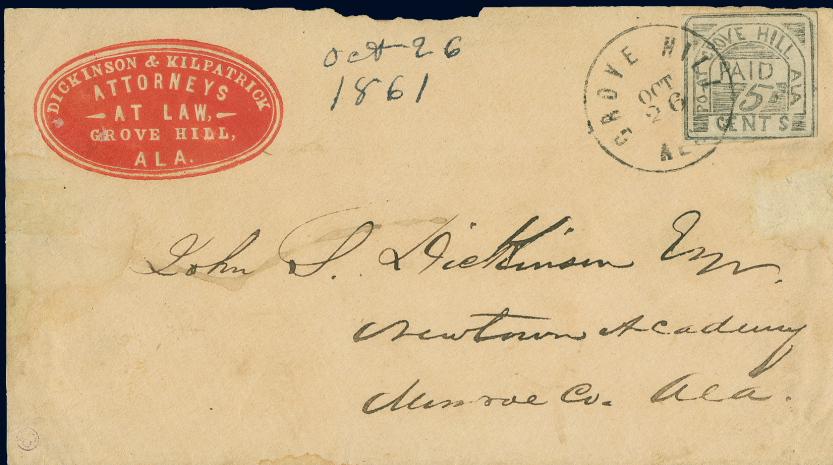 DICKINSON & KILPATRICK
ATTORNEYS
AT LAW,
GROVE HILL,
ALA.
Oct 26
1861
GROVE HILL
OCT
26
ALA
GROVE HILL ALA
PAID
5
CENTS
John S. Dickinson Esqr.
Newtown Academy
Munroe Co. Ala.